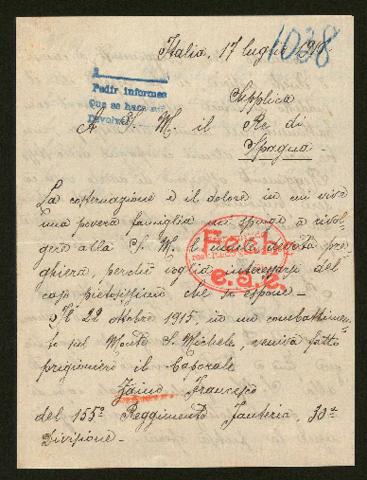 Italia, 17 luglio 1916
1038
Pedir informes
Que se haga
Devolver
Supplica
A S. M. il Re di
Spagna.
La costernazione e il dolore in cui vive
una povera famiglia mi spinge a rivol-
gere alla S. M. l'umile devota pre-
ghiera, perchè voglia interessarsi del
caso pietosissimo che si espone.
Il 22 ottobre 1915, in un combattimen-
to sul Monte S. Michele, veniva fatto
prigioniero il Caporale
Zaino Francesco
del 155° Reggimento Fanteria, 30ª
Divisione.
Fech
e.a.z.